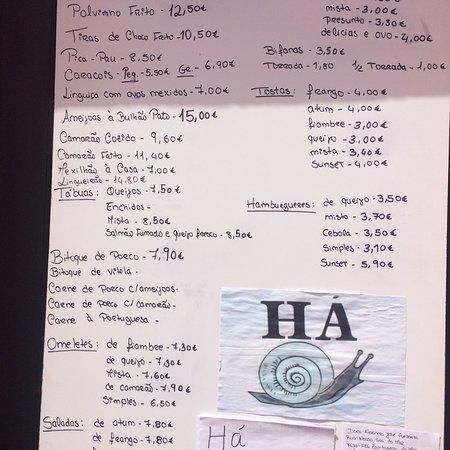 Polvinho Frito - 12,50€
Tiras de Choco Frito - 10,50€
Pica - Pau - 8,50€
Caracois - Peq. - 5.50€ Gr. - 6,90€
Linguiça com ovos mexidos - 7,00€
Ameijoas à Bulhão Pato - 15,00€
Camarão Cozido - 9,60€
Camarão Frito - 11,40€
Mexilhão à Casa - 7,00€
Lingueirão - 14,80€
Tábuas: Queijos - 7,50€
Enchidos -
Mista - 8,50€
Salmão Fumado e queijo fresco - 8,50€
Bitoque de Porco - 7,90€
Bitoque de vitela -
Carne de Porco c/ameijoas -
Carne de Porco c/camarão -
Carne à Portuguesa -
Omeletes: de fiambre - 7,30€
de queijo - 7,30€
Mista - 7,60€
de camarão - 7,90€
Simples - 6,50€
Saladas: de atum - 7,80€
de frango - 7,80€
mista - 3,00€
presunto - 3,30€
delicias e ovo - 4,00€
Bifanas - 3,50€
Torrada - 1,80 1/2 Torrada - 1,00€
Tostas: frango - 4,00€
atum - 4,00€
fiambre - 3,00€
queijo - 3,00€
mista - 3,40€
Sunset - 4,00€
Hamburgueres: de queijo - 3,50€
misto - 3,70€
Cebola - 3,50€
Simples - 3,10€
Sunset - 5,90€
HÁ
Há